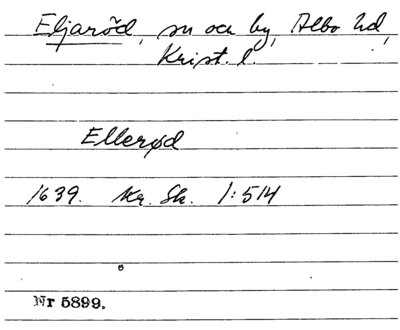 Eljaröd, sn och by, Albo hd,
Krist. l.
Ellerød
1639. Kr. Sk. 1:514
Nr 5899.